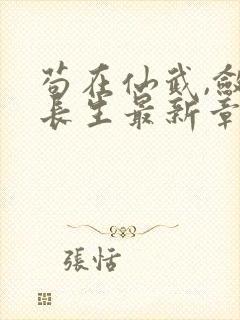 苟在仙武,斂
長生最新章
張恬